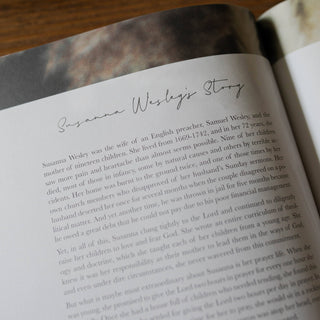 Susanna Wesley's Story
Susanna Wesley was the wife of an English preacher, Samuel Wesley, and the
mother of nineteen children. She lived from 1669-1742, and in her 72 years, she
saw more pain and heartache than almost seems possible. Nine of her children
died, most of those in infancy, some by natural causes and others by terrible ac-
cidents. Her home was burnt to the ground twice, and one of those times by her
own church members who disapproved of her husband's Sunday sermons. By
husband deserted her once for several months when the couple disagreed on a po-
litical matter. And yet another time, he was thrown in jail for five months because
he owed a great debt that he could not pay due to his poor financial management
Yet, in all of this, Susanna clung tightly to the Lord and continued to diligently
raise her children to love and fear God. She wrote an entire curriculum of theol-
ogy and doctrine, which she taught each of her children from a young age. She
knew it was her responsibility as their mother to lead them in the ways of God,
and even under dire circumstances, she never wavered from this commitment.
But what is maybe most extraordinary about Susanna is her prayer life. When she
was young, she promised to give the Lord two hours in prayer for every one hour she
Once she had a house full of children who needed tending, she found this
settled for giving the Lord two hours per day in prayer
for her to pray, she would sit in a
was stop